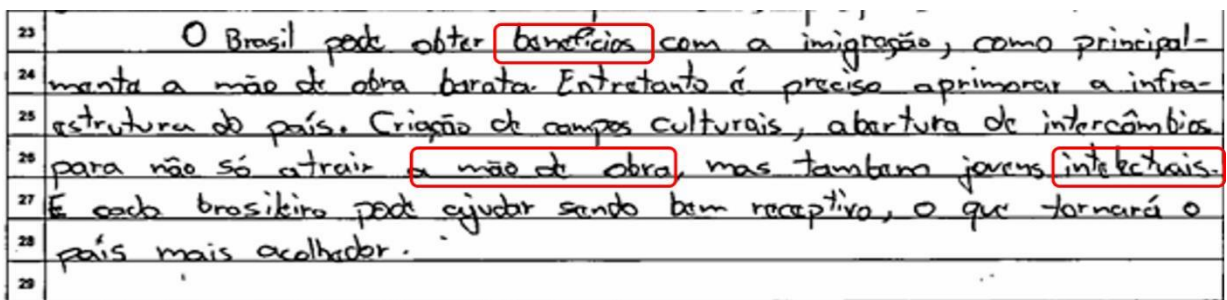 23 O Brasil pode obter benefícios com a imigração, como principal-
24 mente a mão de obra barata. Entretanto é preciso aprimorar a infra-
25 estrutura do país. Criação de campos culturais, abertura de intercâmbios
26 para não só atrair a mão de obra, mas tambem jovens intelectuais.
27 E cada brasileiro pode ajudar sendo bem receptivo, o que tornará o
28 país mais acolhedor.
29